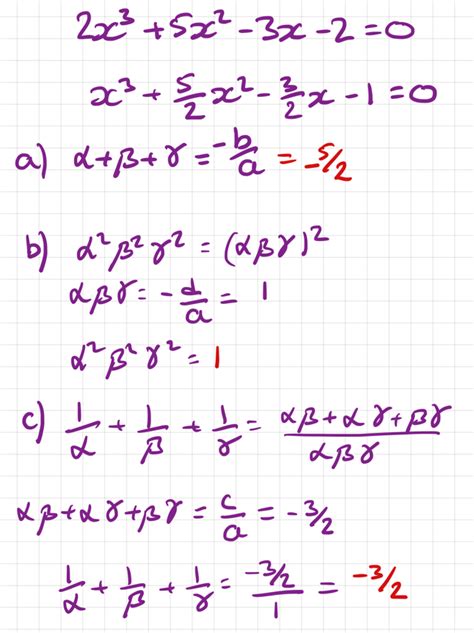 2x³ + 5x² - 3x - 2 = 0
x³ + 5/2 x² - 3/2 x - 1 = 0
a) α + β + γ = -b/a = -5/2
b) α² β² γ² = (αβγ)²
αβγ = - d/a = 1
α² β² γ² = 1
c) 1/α + 1/β + 1/γ = (αβ + αγ + βγ)/(αβγ)
αβ + αγ + βγ = c/a = -3/2
1/α + 1/β + 1/γ = (-3/2)/1 = -3/2